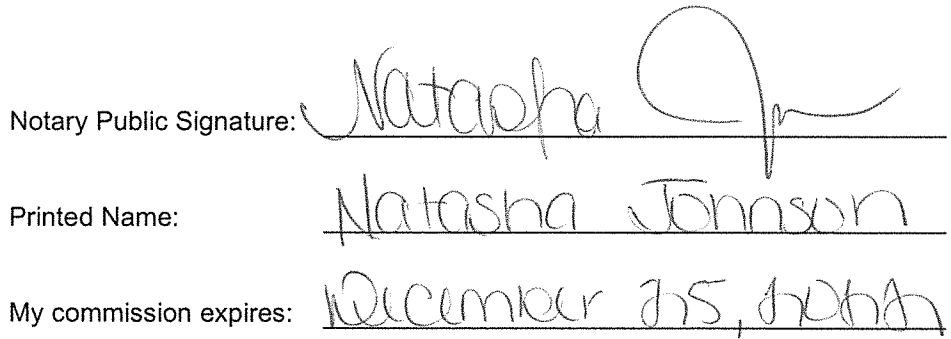 Notary Public Signature: Natasha J
Printed Name: Natasha Johnson
My commission expires: December 25, 2022